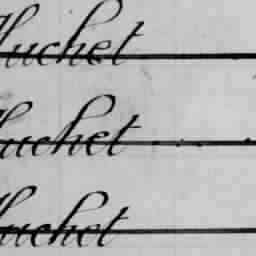 Huchet
Huchet
Huchet